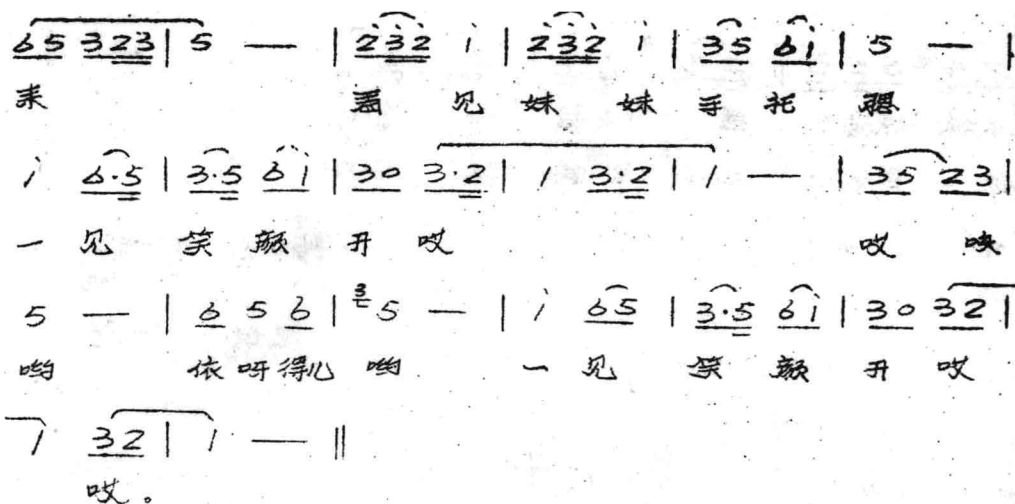 65 323 | 5 — | 232 i | 232 i | 35 6i | 5 — |
来 盖 见 妹 妹 手 托 腮
i 6·5 | 3·5 6i | 30 3·2 | 1 3·2 | 1 — | 35 23 |
一 见 笑 颜 开 哎 哎
5 — | 6 5 6 | 3 5 — | i 65 | 3·5 6i | 30 32 |
哟 依 呀 得儿 哟 一 见 笑 颜 开 哎
1 32 | 1 — ‖
哎 。